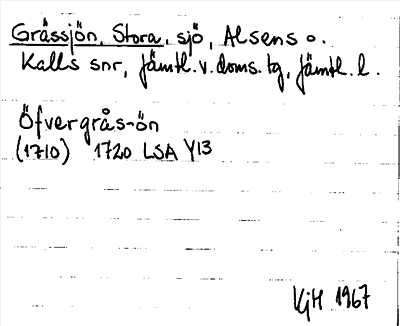 Gråssjön, Stora, sjö, Alsens o.
Kalls snr, Jämtl. v. doms. tg, Jämtl. l.
Öfvergrås-ön
(1710) 1720 LSA Y13
KjH 1967